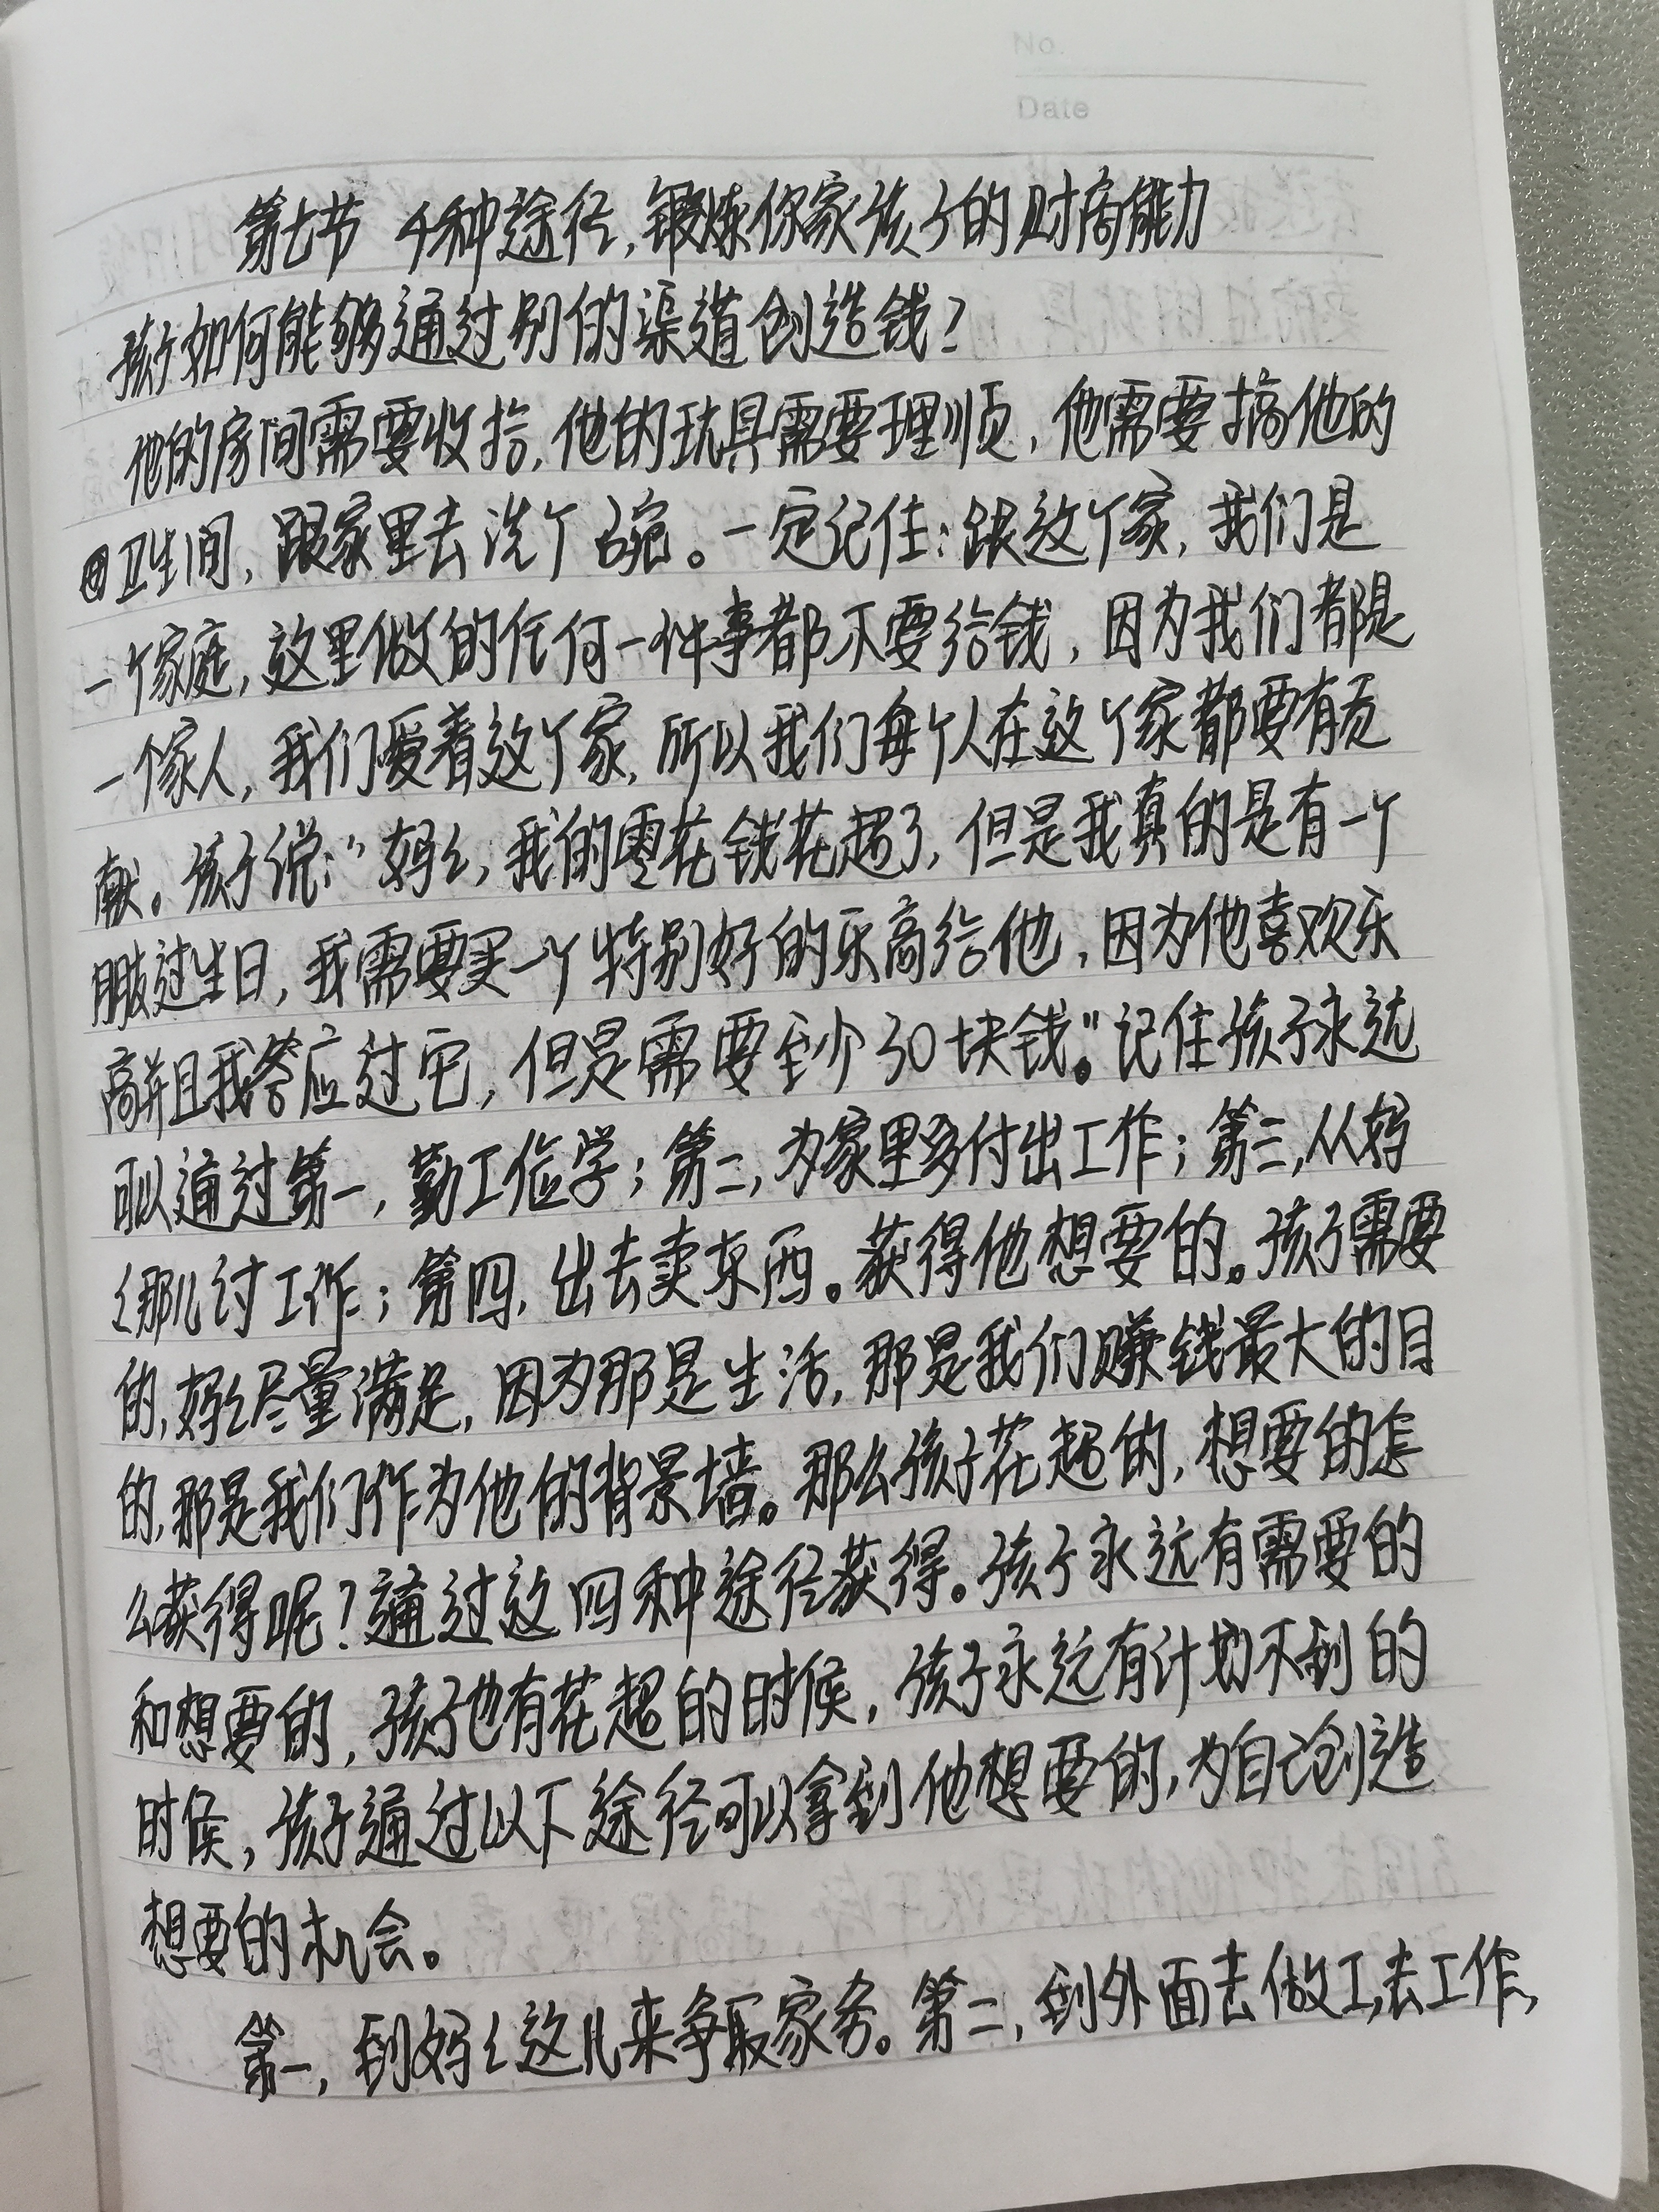 No.
Date
第七节 4种途径,锻炼你家孩子的财商能力
孩子如何能够通过别的渠道创造钱?
他的房间需要收拾,他的玩具需要理顺,他需要搞他的
卫生间,跟家里去洗个碗。一定记住:跟这个家,我们是
一个家庭,这里做的任何一件事都不要给钱,因为我们都是
一个家人,我们爱着这个家,所以我们每个人在这个家都要有贡
献。孩子说:"妈妈,我的零花钱花超了,但是我真的是有一个
朋友过生日,我需要买一个特别好的乐高给他,因为他喜欢乐
高并且我答应过它,但是需要至少30块钱。"记住孩子永远
可以通过第一,勤工俭学;第二,为家里多付出工作;第三,从妈
妈那儿讨工作;第四,出去卖东西。获得他想要的。孩子需要
的,妈妈尽量满足,因为那是生活,那是我们赚钱最大的目
的,那是我们作为他的背景墙。那么孩子花超的,想要的怎
么获得呢?通过这四种途径获得。孩子永远有需要的
和想要的,孩子也有花超的时候,孩子永远有计划不到的
时候,孩子通过以下途径可以拿到他想要的,为自己创造
想要的机会。
第一,到妈妈这儿来争取家务。第二,到外面去做工,去工作,